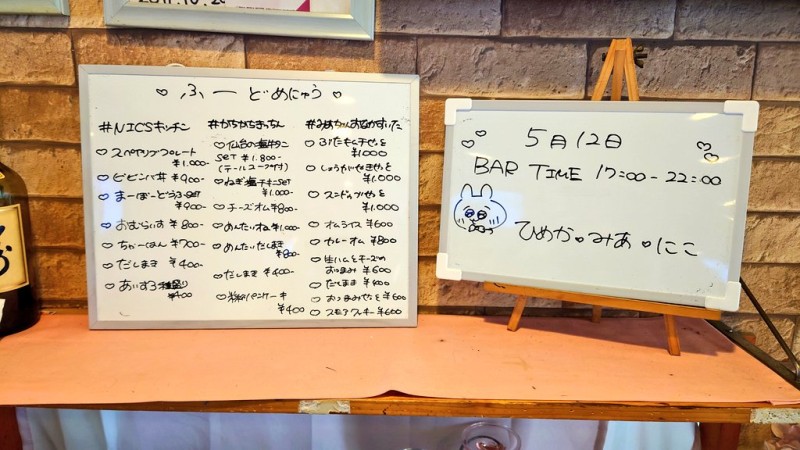 ♡ ふーどめにゅう ♡
#NICSキッチン
♡ スペアリブプレート
¥1.000-
♡ ビビンバ丼 ¥900-
♡ まーぼーどうふSET
¥900-
♡ おむらいす ¥800-
♡ ちゃーはん ¥700-
♡ だしまき ¥400-
♡ あいす3種盛り
¥400
♡ 仙台の塩牛タン
SET ¥1.800-
(テールスープ付)
♡ ねぎ塩チキンSET
¥1.000-
♡ チーズオム ¥800-
♡ めんたいオム ¥1.000-
♡ めんたいだしまき
¥800-
♡ だしまき ¥400-
♡ パンケーキ
¥400
#みあちゃんおなかすいた
♡ ぶたキムチせっと
¥1000
♡ しょうがやきせっと
¥1.000
♡ スンドゥブせっと
¥1.000
♡ オムライス ¥600
♡ カレーオム ¥800
♡ 生ハムとチーズの
おつまみ ¥600
♡ だしまき ¥400
♡ おつまみせっと ¥600
♡ スモアクッキー ¥600
5月12日
BAR TIME 17:00-22:00
ひめか♡みあ♡にこ